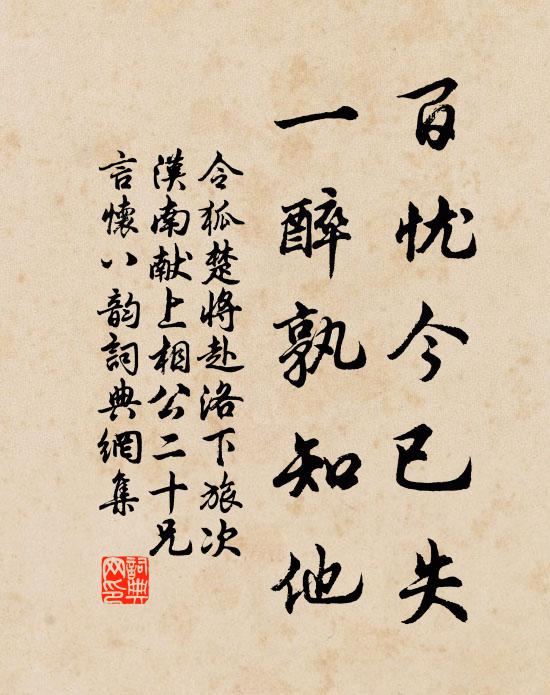 百忧今已失
一醉孰知他
令狐楚将赴洛下旅次
漢南献上相公二十兄
言懷八韵詞典網集
詞典
网印